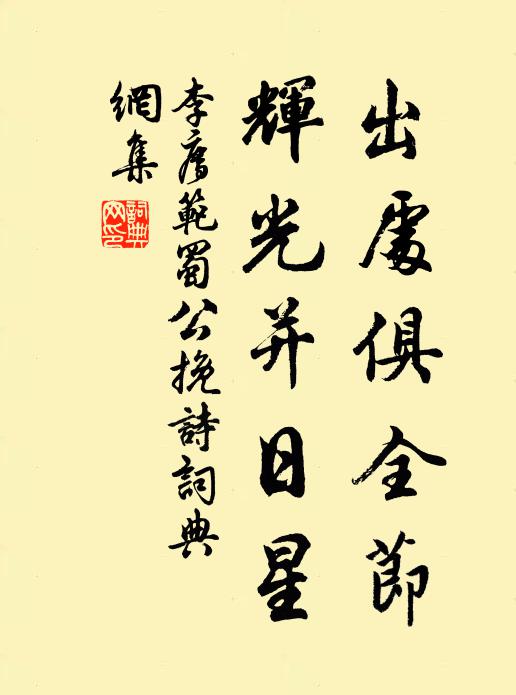 出處俱全節
輝光并日星
李廌範蜀公挽詩詞典
網集
詞典
网印